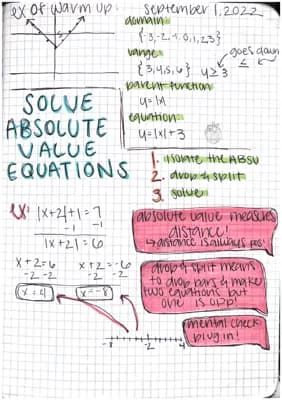 ex of warm up:
september 1, 2022
domain
{-3,-2,-1,0,1,2,3}
range
{3,4,5,6} y≥3
goes down
≤
parent function
y=|x|
equation
y=|x|+3
SOLVE
ABSOLUTE
VALUE
EQUATIONS
1. isolate the ABSV
2. drop & split
3. solve
ex: |x+2|+1=7
-1 -1
|x+2|=6
x+2=6 x+2=-6
-2 -2 -2 -2
x=4 x=-8
absolute value measures
distance!
↳ distance is always pos!
drop & split means
to drop bars & make
two equations but
one is opp!
mental check
plug in!
-8 -2 4